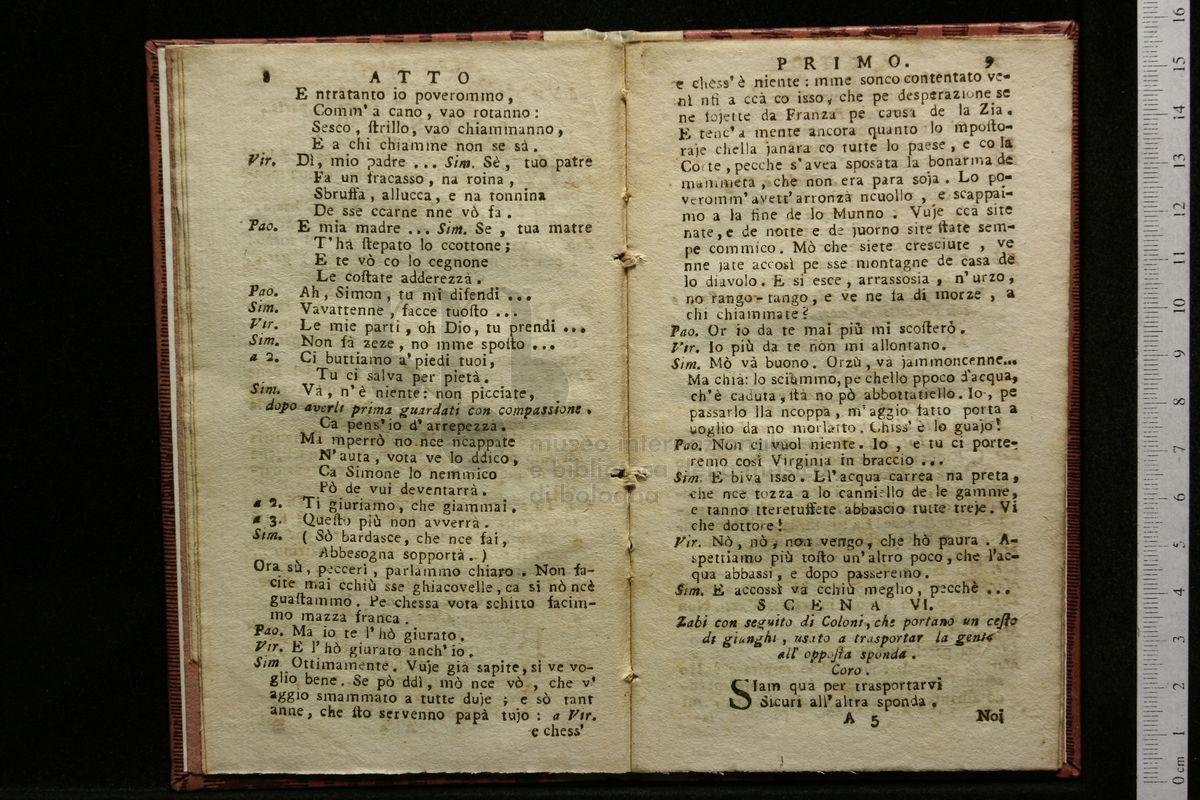 8 ATTO
E ntratanto io poverommo,
Comm' a cano, vao rotanno:
Sesco, strillo, vao chiammanno,
E a chi chiamme non se sà.
Vir. Dì, mio padre ... Sim. Sè, tuo patre
Fa un fracasso, na roina,
Sbruffa, allucca, e na tonnina
De sse ccarne nne vò fa.
Pao. E mia madre ... Sim. Se, tua matre
T'ha stepato lo ccottone;
E te vò co lo cegnone
Le costate adderezzà.
Pao. Ah, Simon, tu mi difendi ...
Sim. Vavattenne, facce tuosto ...
Vir. Le mie parti, oh Dio, tu prendi ...
Sim. Non fà zeze, no mme sposto ...
a 2. Ci buttiamo a' piedi tuoi,
Tu ci salva per pietà.
Sim. Và, n'è niente: non picciate,
dopo averli prima guardati con compassione.
Ca pens'io d'arrepezzà.
Ma mperrò no nce ncappate
N'auta, vota ve lo ddico,
Ca Simone lo nemmico
Pò de vui deventarrà.
a 2. Ti giuriamo, che giammai,
a 3. Questo più non avverrà.
Sim. (Sò bardasce, che nce fai,
Abbesogna sopportà.)
Ora sù, pecceri, parlammo chiaro. Non fa-
cite mai cchiù sse ghiacovelle, ca si nò ncè
guastammo. Pe chessa vota schitto facim-
mo mazza franca.
Pao. Ma io te l'hò giurato.
Vir. E l'hò giurato anch'io.
Sim Ottimamente. Vuje già sapite, si ve vo-
glio bene. Se pò ddì, mò nce vò, che v'
aggio smammato a tutte duje; e sò tant
anne, che sto servenno papà tujo: a Vir.
e chess'
PRIMO. 9
e chess'è niente: mme sonco contentato ve-
nì nfi a ccà co isso, che pe desperazione se
ne fojette da Franza pe causa de la Zia.
E tenc'a mente ancora quanto lo mposto-
raje chella janara co tutte lo paese, e co la
Corte, pecche s'avea sposata la bonarma de
mammeta, che non era para soja. Lo po-
veromm'avett'arronzà ncuollo, e scappai-
mo a la fine de lo Munno. Vuje ccà site
nate, e de notte e de juorno site state sem-
pe commico. Mò che siete cresciute, ve
nne jate accosì pe sse montagne de casa de
lo diavolo. E si esce, arrassosia, n'urzo,
no rango-tango, e ve ne fa di morze, a
chi chiammate?
Pao. Or io da te mai più mi scosterò.
Vir. Io più da te non mi allontano.
Sim. Mò và buono. Orzù, va jammoncenne...
Ma chià: lo sciummo, pe chello ppoco d'acqua,
ch'è caduta, stà no pò abbottatiello. Io, pe
passarlo lla ncoppa, m'aggio fatto portà a
voglio da no morfatto. Chiss'è lo guajo!
Pao. Non ci vuol niente. Io, e tu ci porte-
remo così Virginia in braccio ...
Sim. E biva isso. Ll'acqua carrea na preta,
che nce tozza a lo canniello de le gamme,
e tanno tteretuffete abbascio tutte treje. Vi
che dottore!
Vir. Nò, nò, non vengo, che hò paura. A-
spettiamo più tosto un'altro poco, che l'ac-
qua abbassi, e dopo passeremo.
Sim. E accossì va cchiù meglio, pecchè ...
SCENA VI.
Zabì con seguito di Coloni, che portano un cesto
di giunghi, usato a trasportar la gente
all' opposta sponda.
Coro.
SIam quà per trasportarvi
Sicuri all'altra sponda.
A 5 Noi